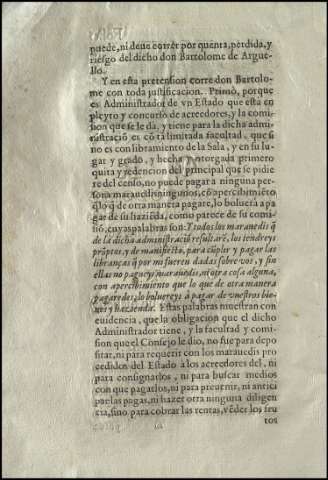 puede, ni deue correr por quenta, perdida, y
riesgo del dicho don Bartolome de Argue-
llo.
Y en esta pretension corre don Bartolo-
me con toda justificacion. Primò, porque
es Administrador de vn Estado que està en
pleyto y concurso de acreedores, y la comi-
sion que se le dà, y tiene para la dicha admi-
nistraciõ es cõ tã limitada facultad, que si
no es con libramiento de la Sala, y en su lu-
gar y grado, y hecha y otorgada primero
quita y redencion del principal que se pidie
re del censo, no puede pagar a ninguna per-
sona marauedis ningunos, cõ apercibimiẽto
q̃ lo q̃ de otra manera pagare, lo boluerà a pa
gar de su haziẽda, como parece de su comi-
siõ, cuyas palabras son: Y todos los marauedis q̃
de la dicha administraciõ resultarẽ, los tendreys
prõptos, y de manifiesto, para cũplir y pagar las
libranças q̃ por mi fueren dadas sobre vos, y sin
ellas no pagueys marauedis, ni otra cosa alguna,
con apercibimiento que lo que de otra manera
pagaredes, lo boluereys à pagar de vuestros bie-
nes y hazienda. Estas palabras muestran con
euidencia, que la obligacion que el dicho
Administrador tiene, y la facultad y comi-
sion que el Consejo le dio, no fue para depo
sitar, ni para requerir con los marauedis pro
cedidos del Estado à los acreedores del, ni
para consignarlos, ni para buscar medios
con que pagarlos, ni para preuenir, ni antici
par las pagas, ni hazer otra ninguna diligen
cia, sino para cobrar las rentas, vẽder los fru
tos